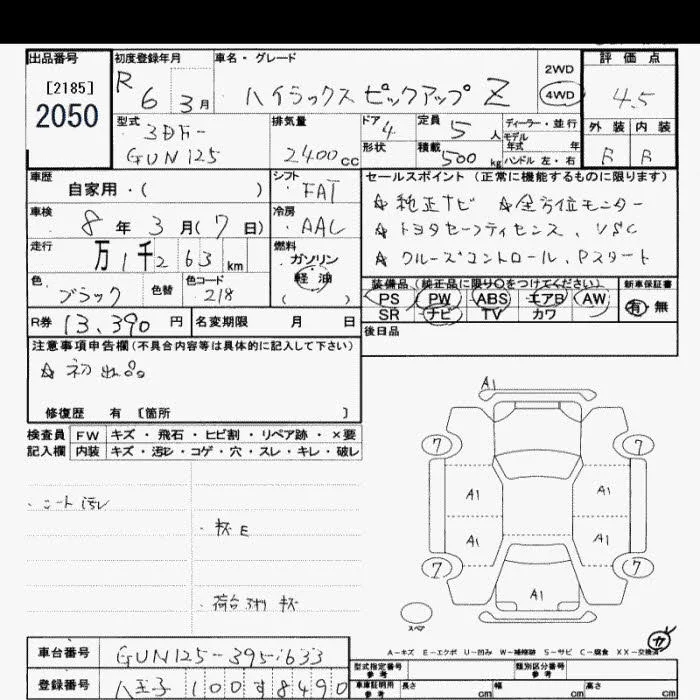 出品番号 初度登録年月 車名・グレード 評価点
[2185]
2050
R 6 3月 ハイラックス ピックアップ Z
2WD
4WD
4.5
外装 内装
B B
型式 3DF-
GUN125
排気量 2400cc
ドア 4
定員 5人
形状
積載 500kg
ディーラー・並行
モデル
年式 年
ハンドル 左・右
車歴 自家用・( )
シフト ・FAT
車検 8年 3月(7日)
冷房 ・AAC
走行 万1千263km
燃料 ガソリン
軽油
( )
色 ブラック 色替
色コード 218
R券 13,390円 名変期限 月 日
セールスポイント (正常に機能するものに限ります)
☆純正ナビ ☆全方位モニター
☆トヨタセーフティセンス、VSC
☆クルーズコントロール、Pスタート
装備品 (純正品に限り○をつけてください) 新車保証書
PS PW ABS エアB AW 有 無
SR ナビ TV カワ
後日品
注意事項申告欄 (不具合内容等は具体的に記入して下さい)
☆初出品
修復歴 有 〔箇所 〕
検査員 FW キズ・飛石・ヒビ割・リペア跡・×要
記入欄 内装 キズ・汚レ・コゲ・穴・スレ・キレ・破レ
・シート汚レ
・杯E
・荷台
A1
7 7
A1 A1
A1 A1
7 7
A1
スペア
A-キズ E-エクボ U-凹み W-補修跡 S-サビ C-腐食 XX-交換済
車台番号 GUN125-3951633
登録番号 八王子 100す8490
型式指定番号 類別区分番号
参考 参考
車庫証明用 長さ 幅 高さ
参考 cm cm cm